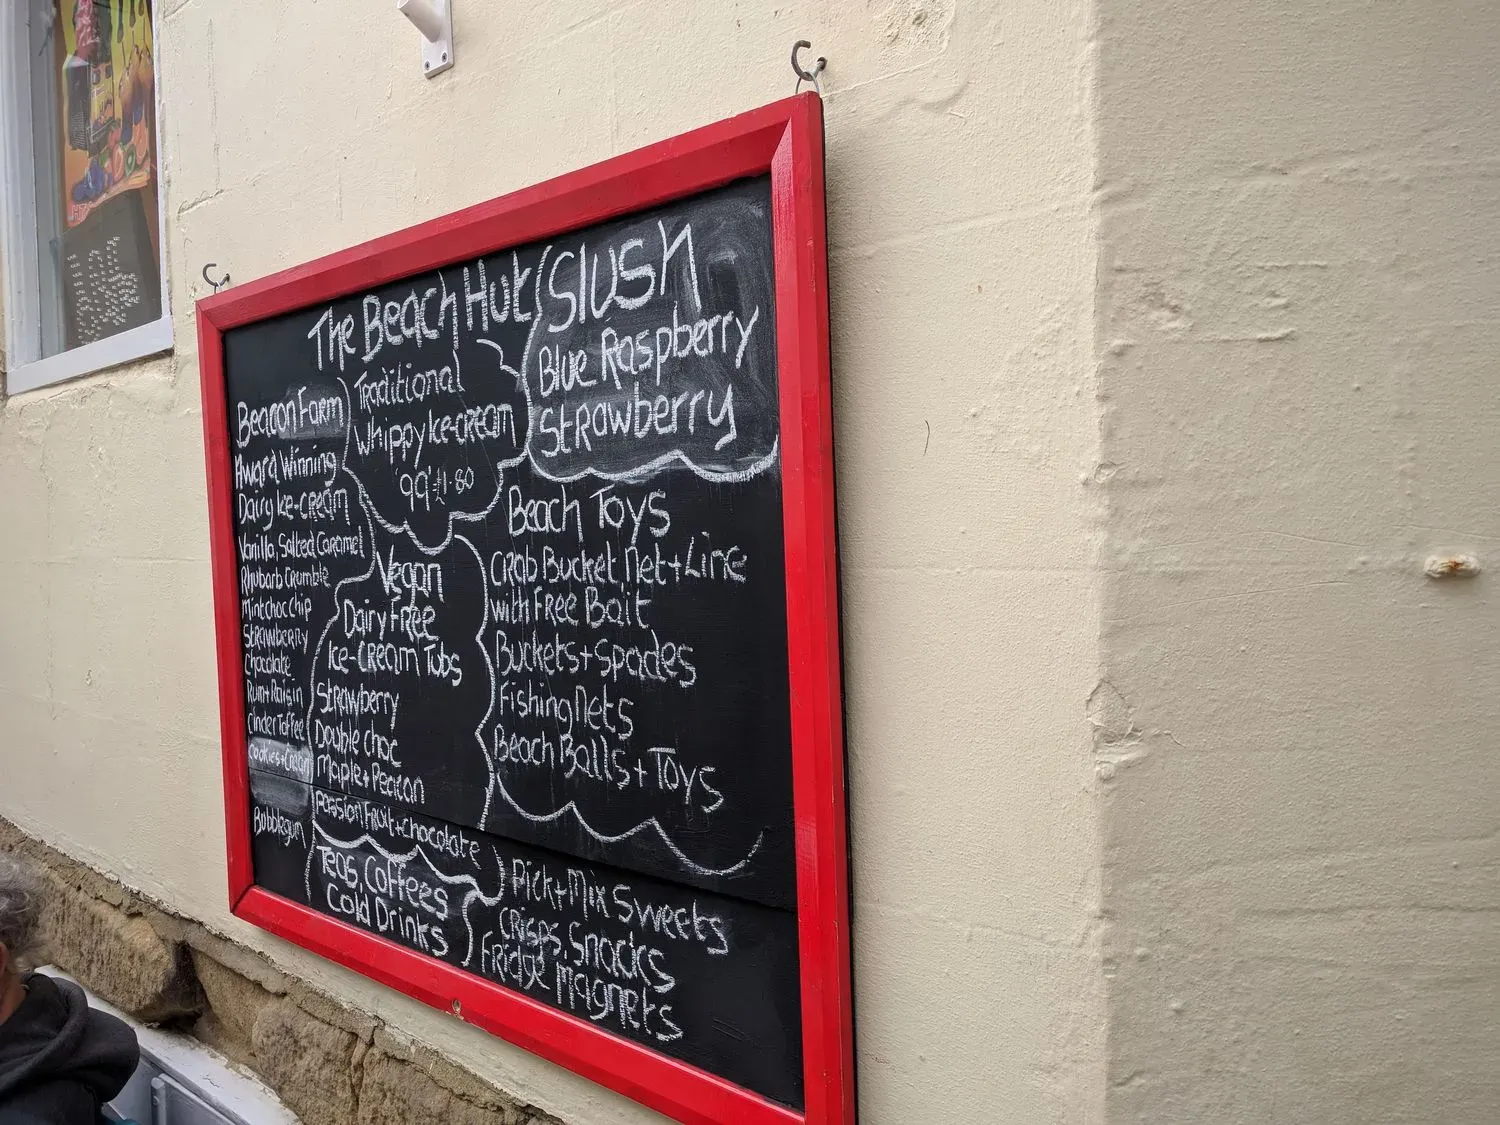 The Beach Hut
Slush
Blue Raspberry
Strawberry
Traditional
Whippy Ice-cream
'99' £1.80
Beacon Farm
Award Winning
Dairy Ice-cream
Vanilla, Salted Caramel
Rhubarb Crumble
Mint choc chip
Strawberry
Chocolate
Rum+Raisin
Cinder Toffee
Cookies+Cream
Bubblegum
Vegan
Dairy Free
Ice-Cream Tubs
Strawberry
Double choc
Maple+Peacan
Passion Fruit+chocolate
Beach Toys
Crab Bucket, Net+Line
with Free Bait
Buckets+Spades
Fishing Nets
Beach Balls+Toys
Teas, Coffees
Cold Drinks
Pick+Mix Sweets
Crisps, Snacks
Fridge Magnets